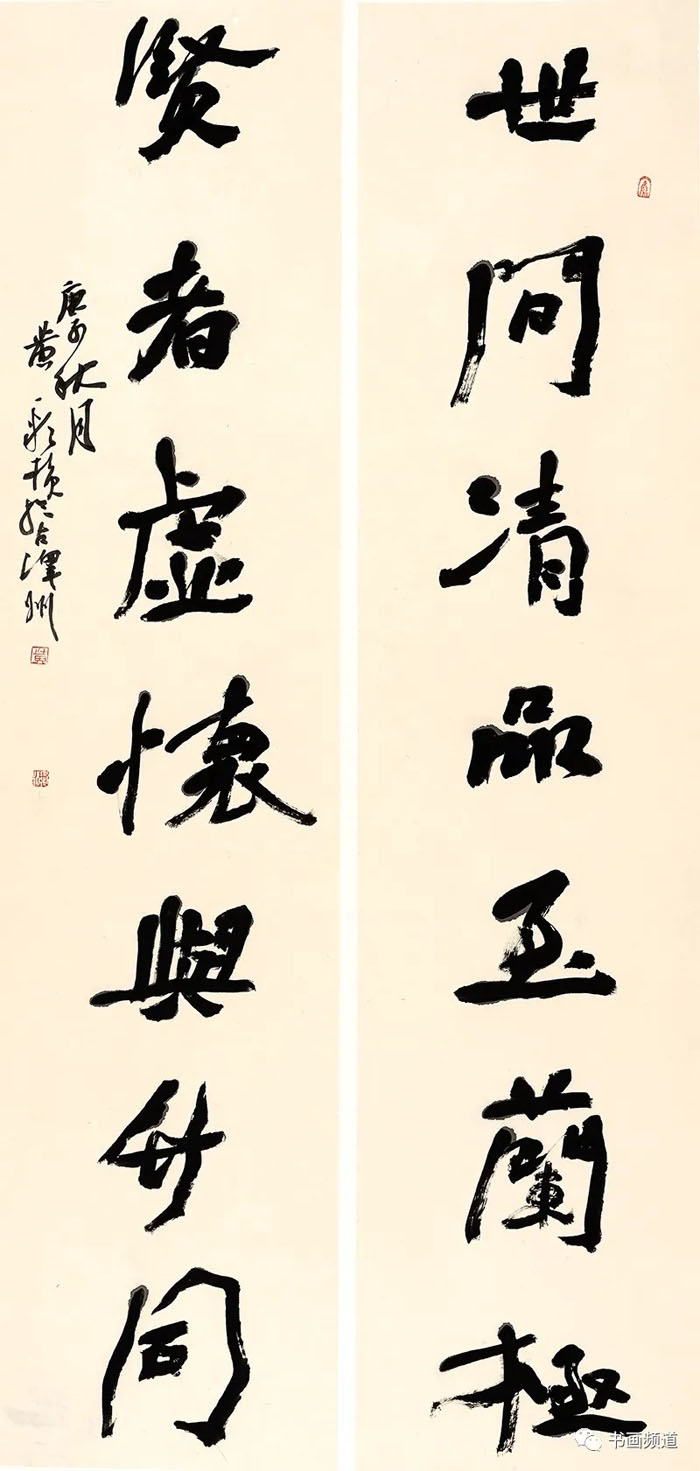 世間清品至蘭極
賢者虛懷與竹同
庚子秋月
黄於古澤州
书画频道